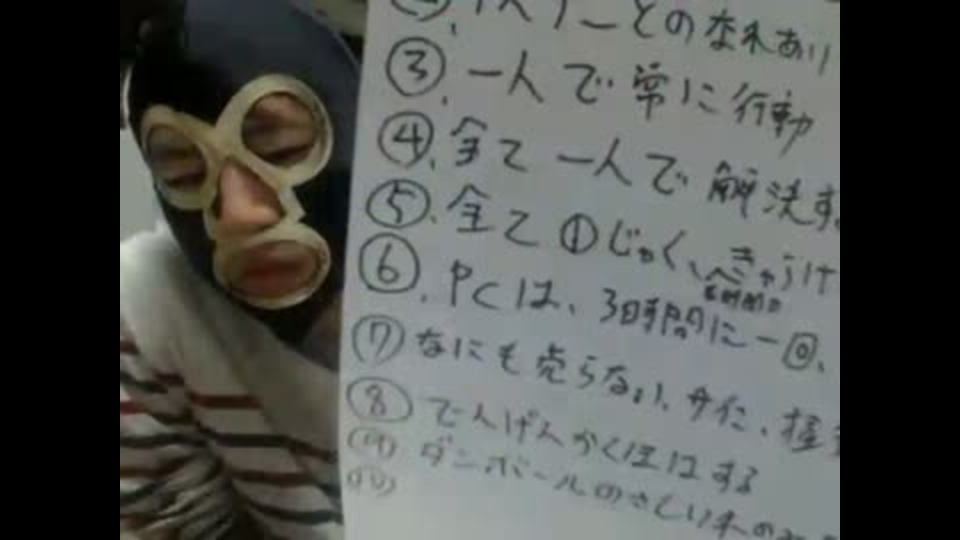 とのなれあい
③、一人で常に行動
④、全て一人で解決す
⑤、全て①じゃく、
⑥、PCは、3時間に一回、
⑦なにも売らない、サイン、握
⑧でんげんかくほはする
⑨ダンボールのさしいれの
⑩